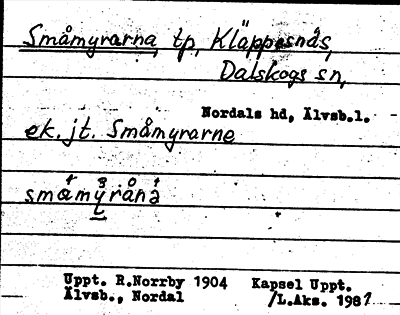 Småmyrarna, tp, Kläppesnäs,
Dalskogs sn,
Nordals hd, Älvsb.l.
ek. jt. Småmyrarne
Uppt. R.Norrby 1904 Kapsel Uppt.
Älvsb., Nordal /L.Aks. 1981